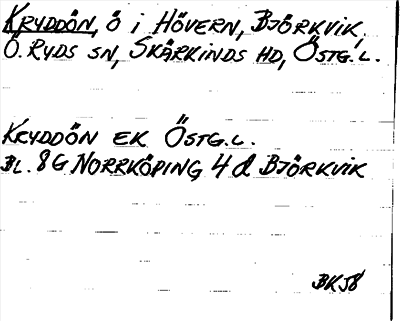 KRYDDÖN, Ö i HÖVERN, BJÖRKVIK,
Ö. RYDS SN, SKÄRKINDS HD, ÖSTG.L.
KRYDDÖN EK ÖSTG.L.
BL. 8G NORRKÖPING 4d BJÖRKVIK
BK58